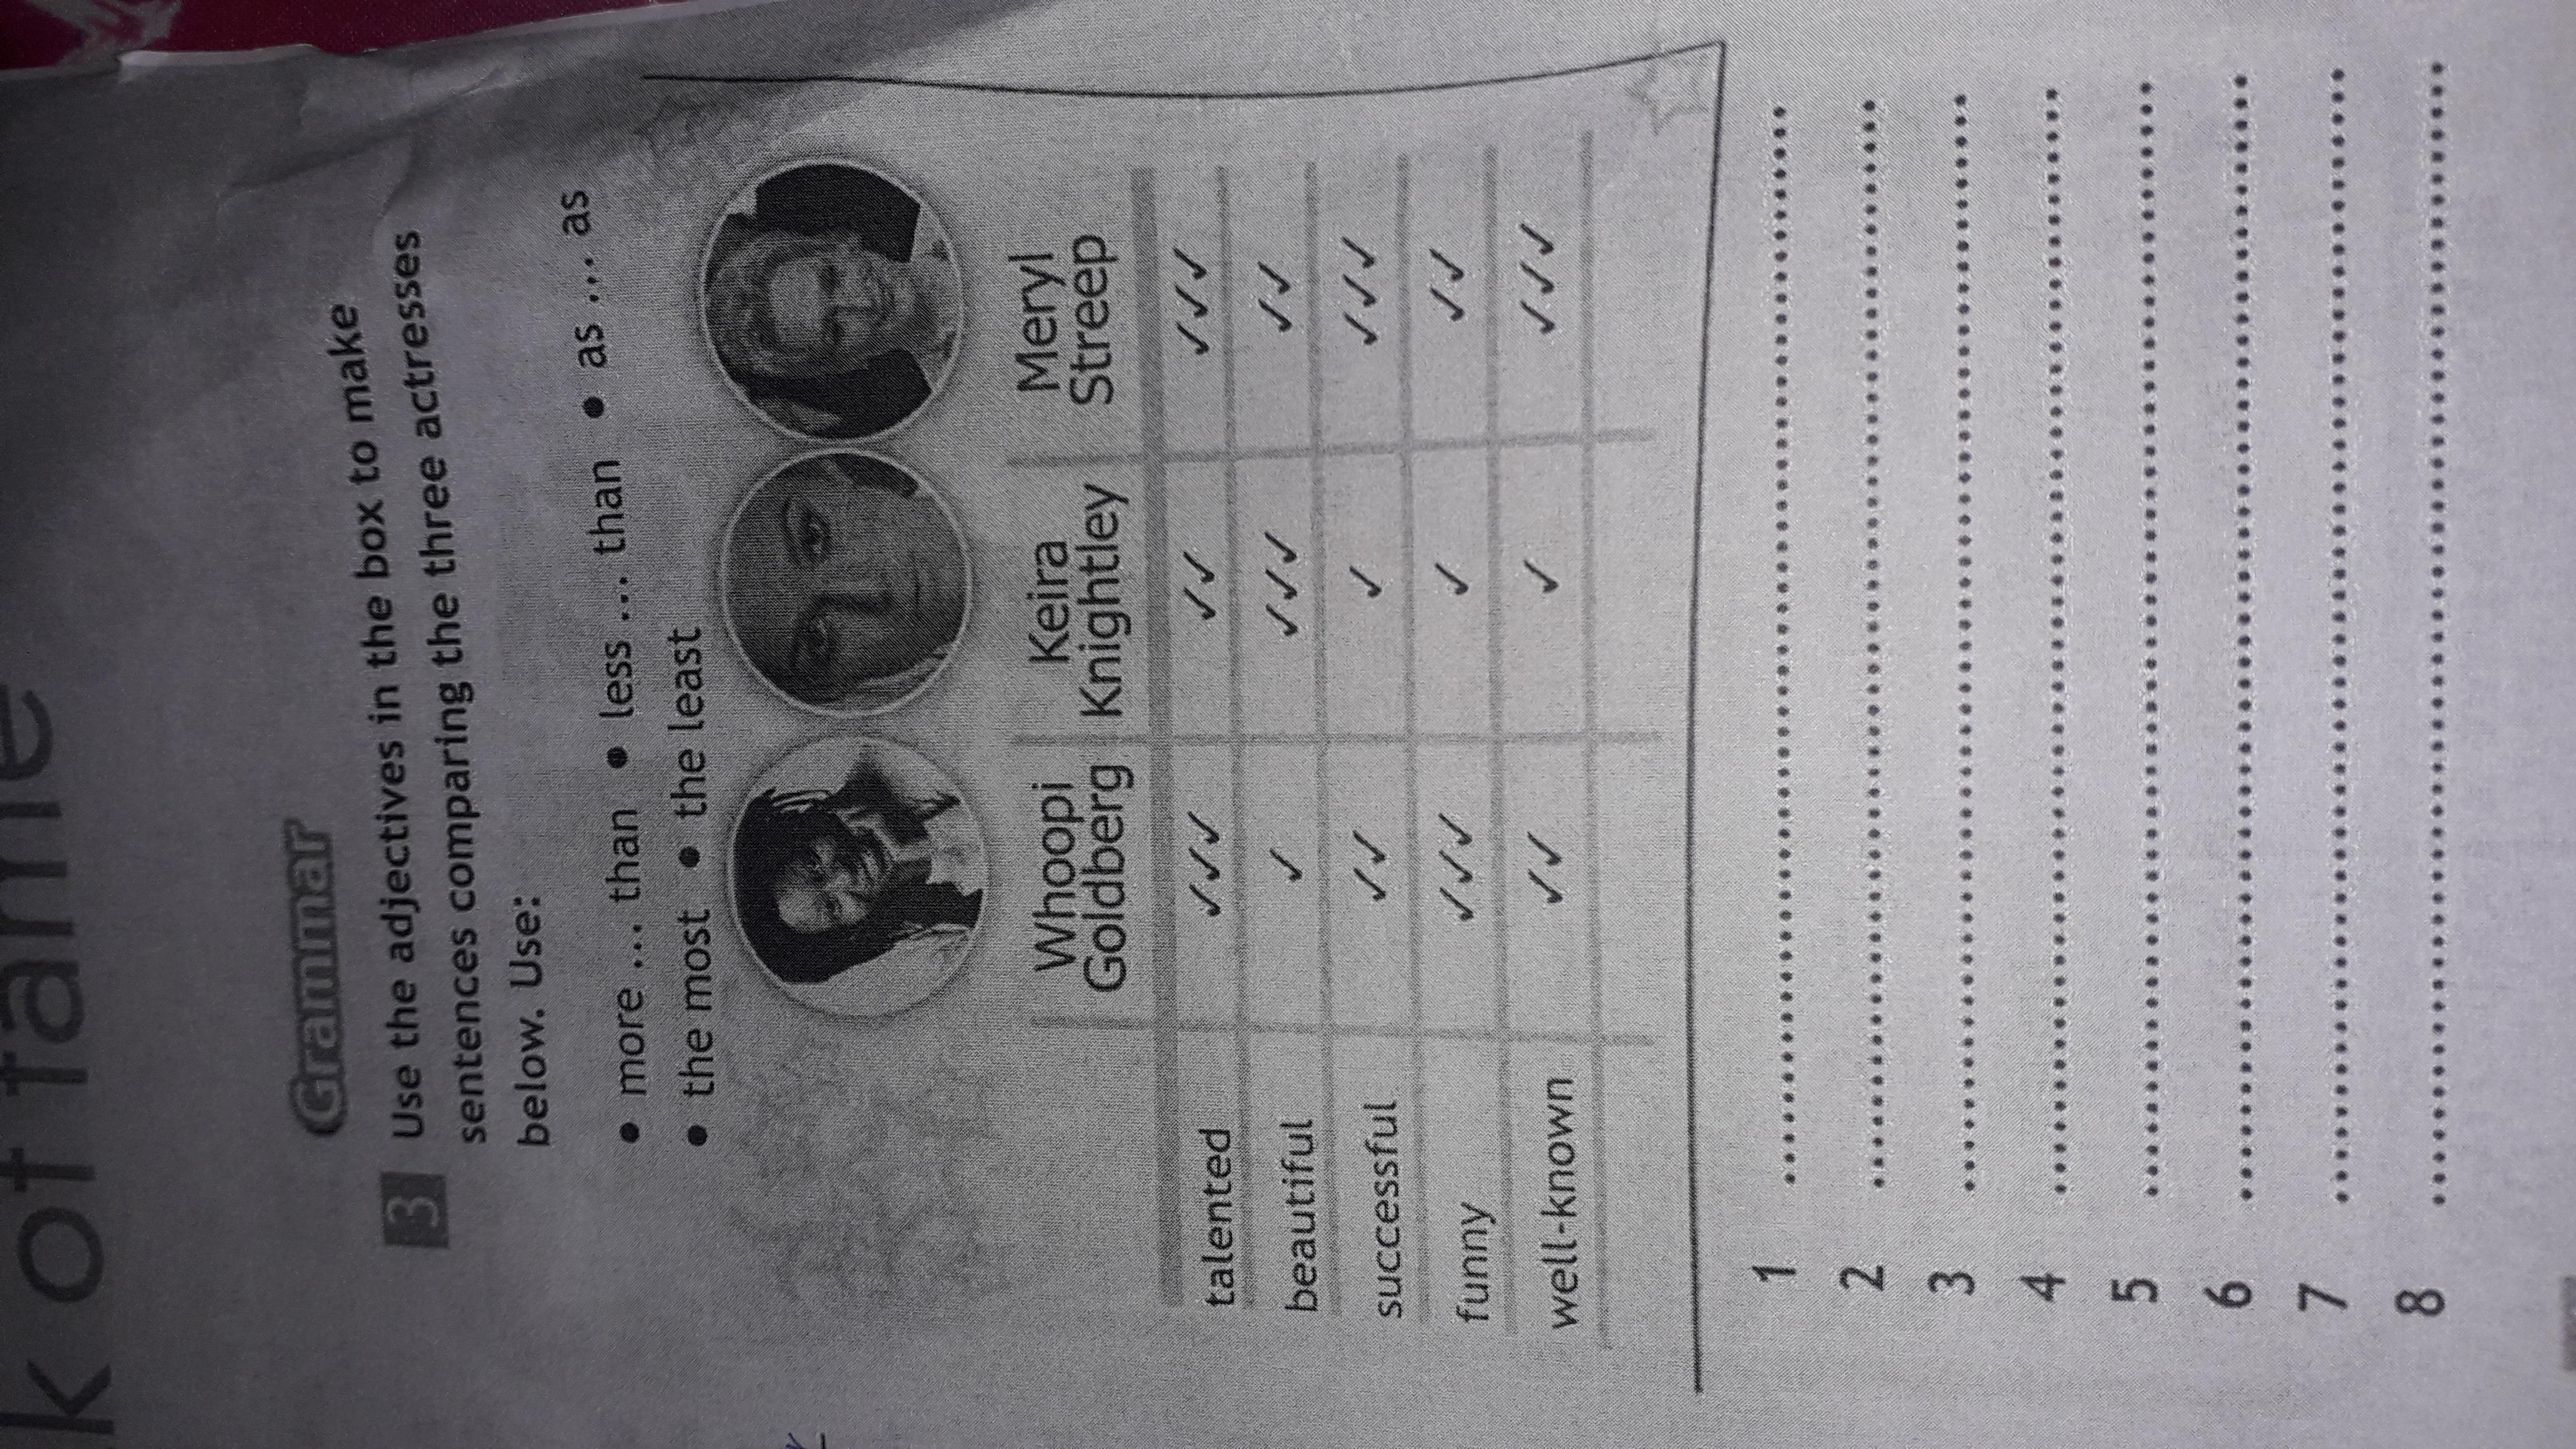 k of fame
Grammar
3 Use the adjectives in the box to make
sentences comparing the three actresses
below. Use:
• more ... than • less ... than • as ... as
• the most • the least
Whoopi Goldberg Keira Knightley Meryl Streep
talented ✓✓✓ ✓✓ ✓✓✓
beautiful ✓ ✓✓✓ ✓✓
successful ✓✓ ✓ ✓✓✓
funny ✓✓✓ ✓ ✓✓
well-known ✓✓ ✓ ✓✓✓
1
2
3
4
5
6
7
8